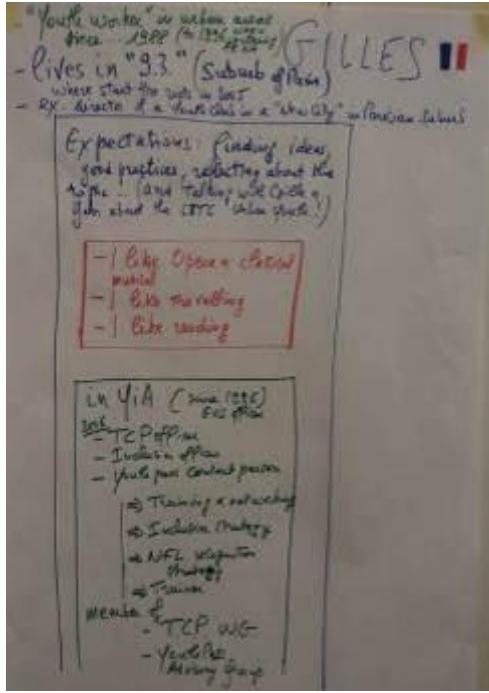 "Youth worker" in urban areas
since 1988 (to 1996
GILLES
- lives in "93" (Suburb of Paris)
where start the riots in 2005
- ex director of a Youth Club in a "new City" in Parisian Suburb
Expectations: finding ideas,
good practices, reflecting about the
topic ... (and talking with
about the urban youth!)
- I like Opera & classical
music
- I like travelling
- I like reading
in YiA (since 1996)
- TCP officer
- Inclusion officer
- Youthpass contact person
⇒ Training & networking
⇒ Inclusion strategy
⇒ NFL recognition
strategy
⇒ Trainer
member of
- TCP WG
- YouthPass
Advisory Group